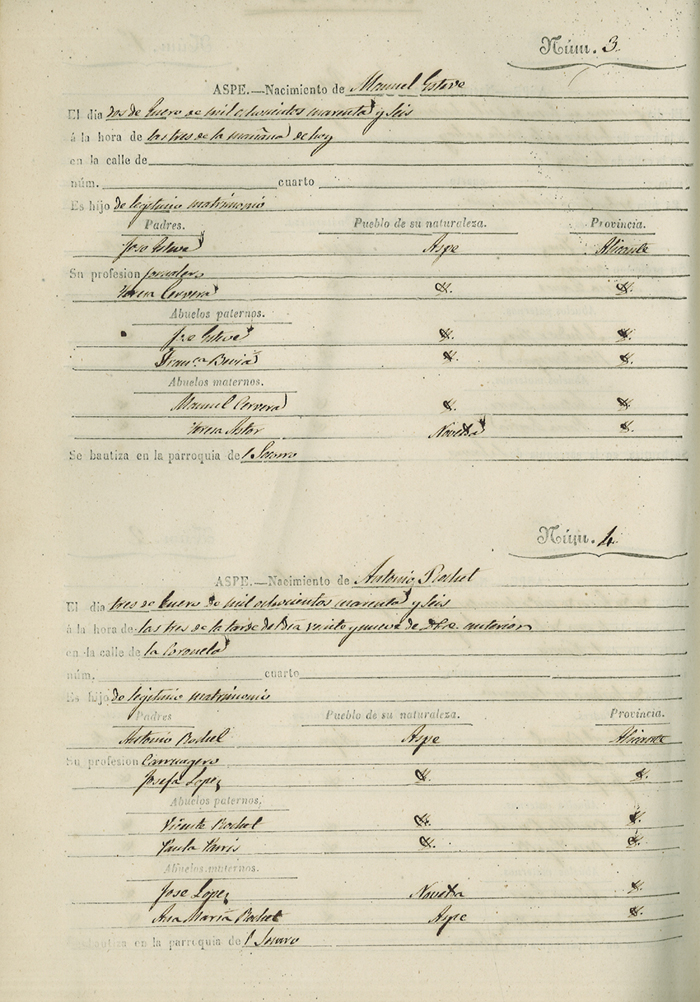 Núm. 3
ASPE.—Nacimiento de Manuel Esteve
El dia dos de Enero de mil ochocientos cuarenta y seis
á la hora de las tres de la mañana de hoy
en la calle de
núm. cuarto
Es hijo de legitimo matrimonio
Padres. Pueblo de su naturaleza. Provincia.
Jose Esteve Aspe Alicante
Su profesion jornalero
Teresa Cervera
Abuelos paternos.
Jose Esteve
Franca
Abuelos maternos.
Manuel Cervera
Teresa Novelda
Se bautiza en la parroquia de
Núm. 4
ASPE.—Nacimiento de Antonio
El dia tres de Enero de mil ochocientos cuarenta y seis
á la hora de las tres de la tarde del dia veinte y nueve de Dbre. anterior
en la calle de la Coronela
núm. cuarto
Es hijo de legitimo matrimonio
Padres Pueblo de su naturaleza. Provincia.
Antonio Aspe Alicante
Su profesion
Josefa Lopez
Abuelos paternos.
Vicente
Paula
Abuelos maternos.
Jose Lopez Novelda
Ana Maria Aspe
Se bautiza en la parroquia de